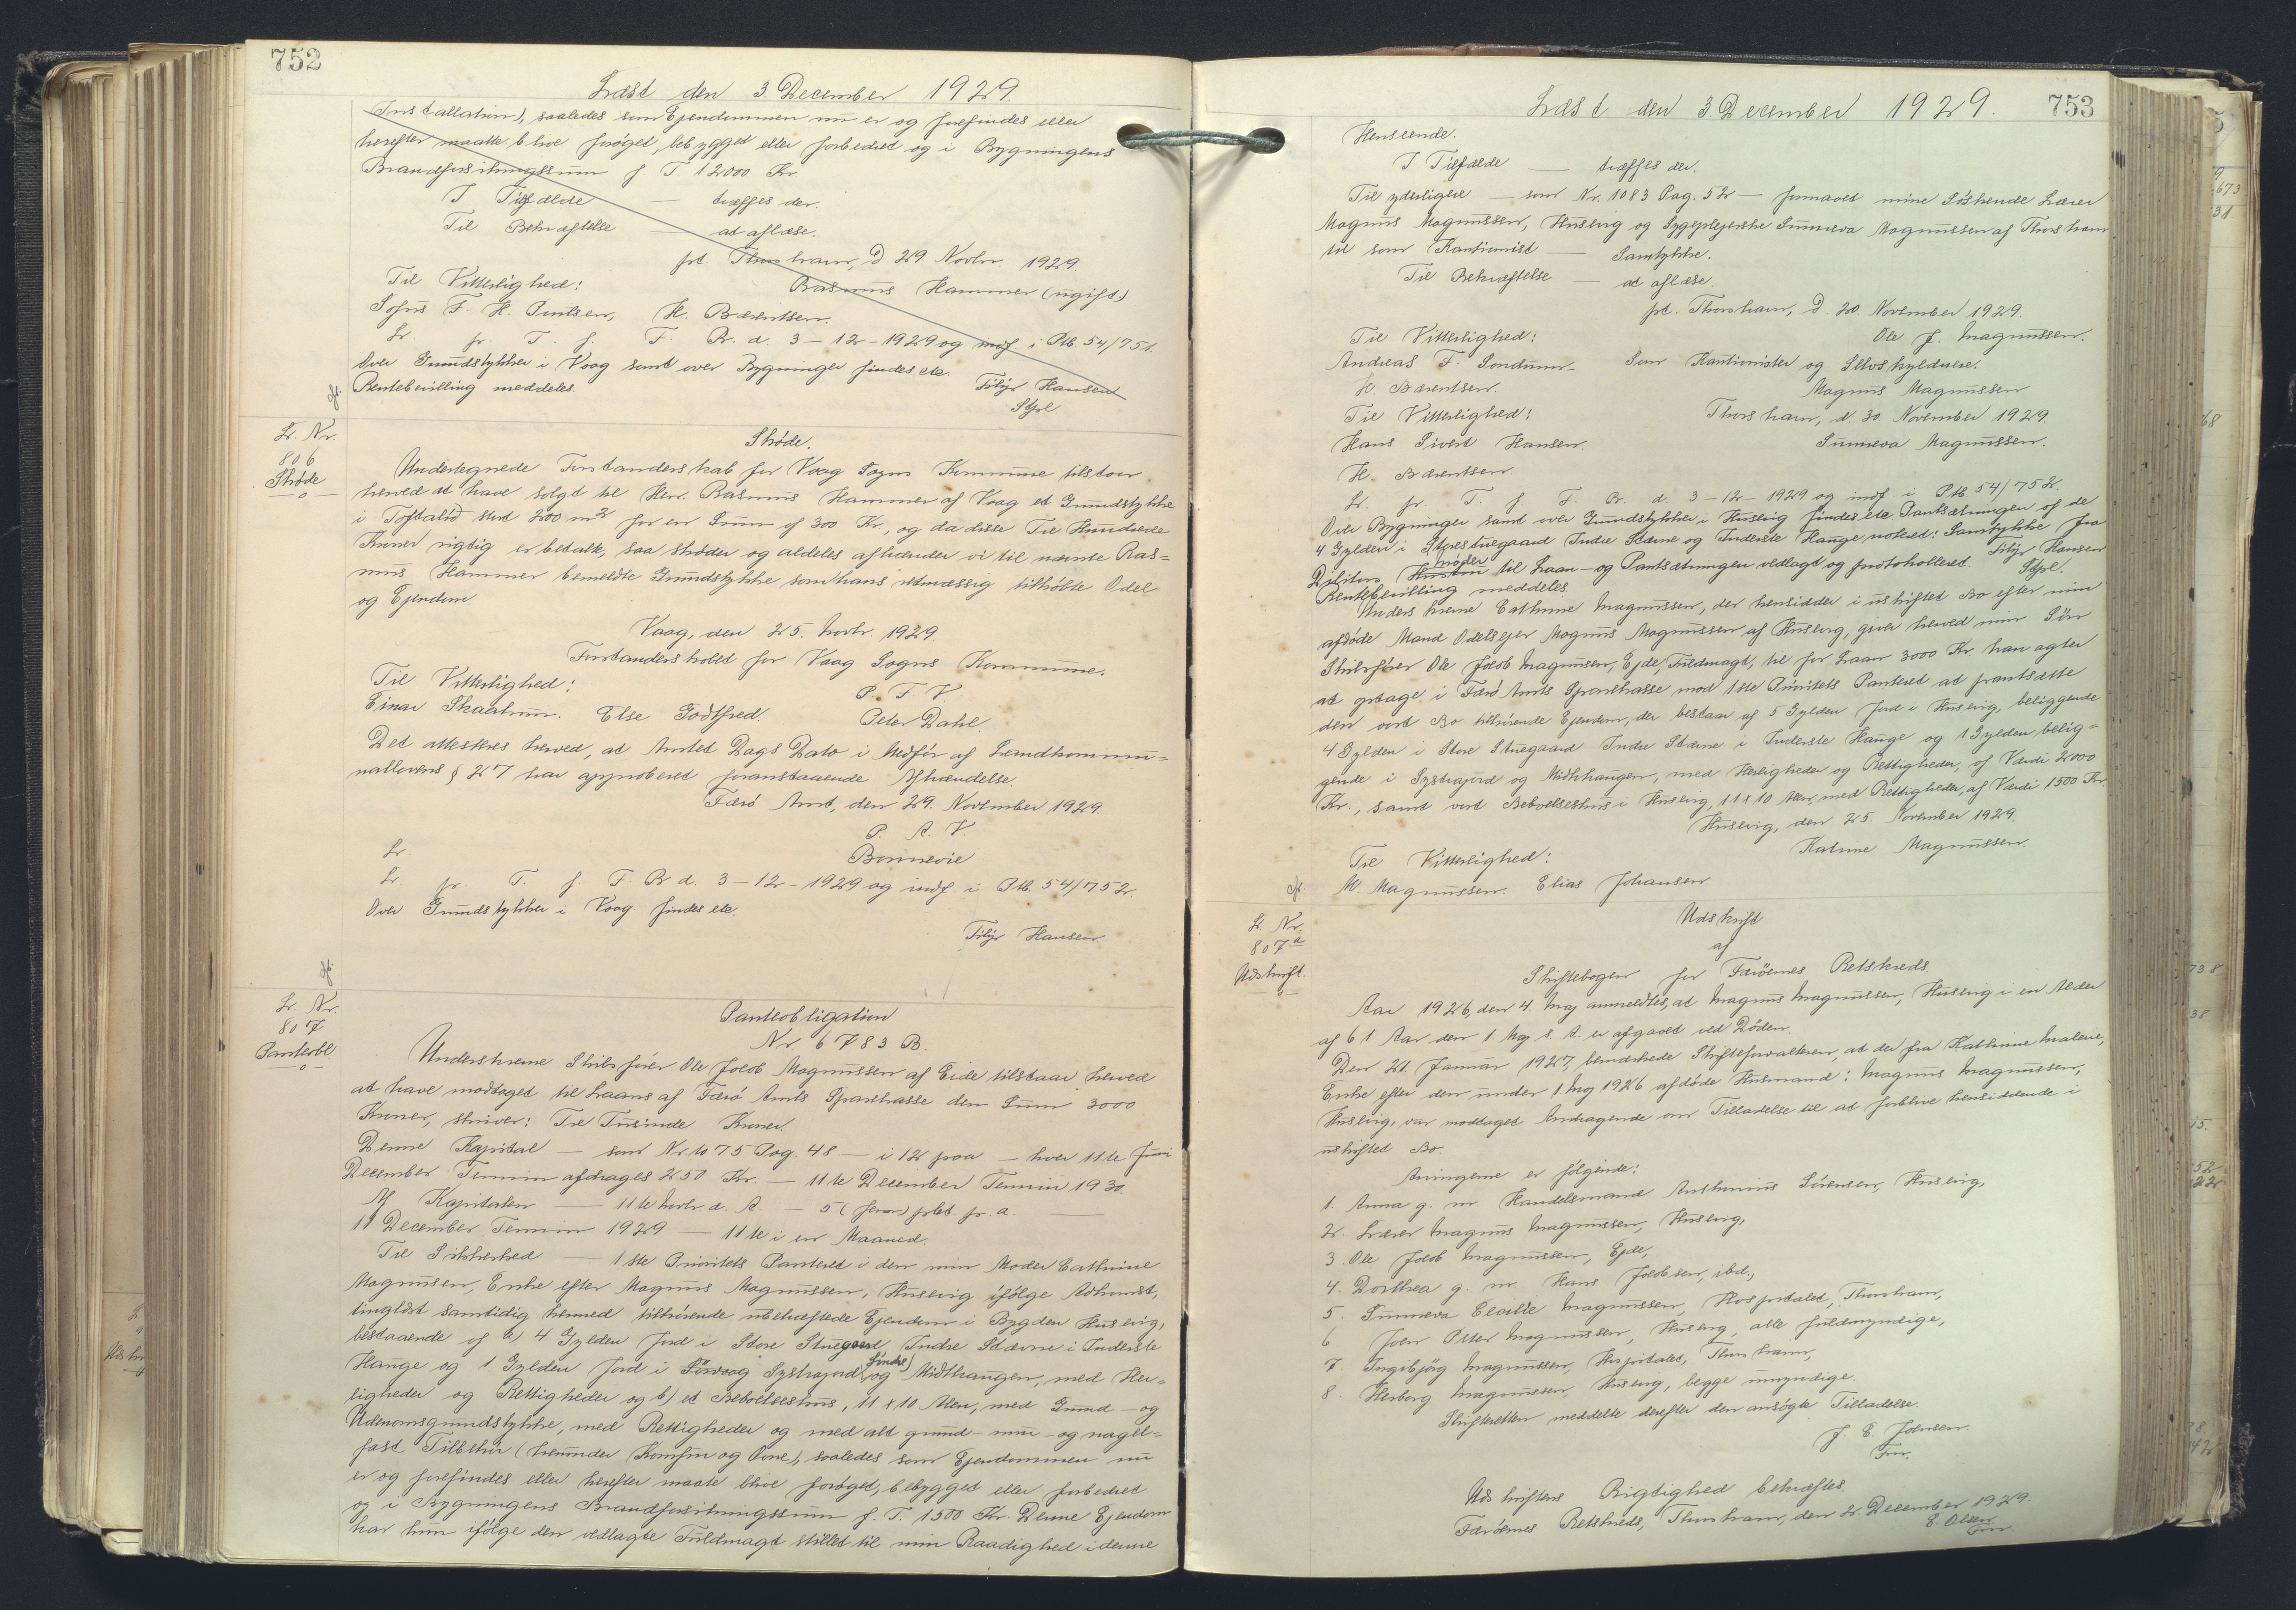 752
Læst den 3. December 1929.
Installation), saaledes som Ejendommen nu er og forefindes eller
herefter maatte blive forøget, bebygget eller forbedret og i Bygningens
Brandforsikringssum f. T. 12000 Kr.
I Tilfælde — træffes der.
Til Bekræftelse — at aflæse.
pt. Thorshavn, D. 29. Novbr. 1929
Til Vitterlighed: Rasmus Hammer (ugift)
Sofus F. H. Poulsen, H. Bærentsen.
Lr. fr. T. f. F. Br. d. 3-12-1929 og indf. i Ptb. 54/751.
Over Grundstykker i Vaag samt over Bygninger findes etc.
Rentebevilling meddeles. Filip Hansen
Stpl
Lr. Nr.
806
Skøde
Skøde.
Undertegnede Forstanderskab for Vaag Sogns Kommune tilstaar
herved at have solgt til Herr. Rasmus Hammer af Vaag et Grundstykke
i Toftalið stort 200 m2 for en Sum af 300 Kr., og da disse Tre Hundrede
Kroner rigtig er betalt, saa skøder og aldeles afhænder vi til nævnte Ras=
mus Hammer bemeldte Grundstykke som hans retmæssig tilkøbte Odel
og Ejendom.
Vaag, den 25. Novbr. 1929.
Forstanderskabet for Vaag Sogns Kommune.
Til Vitterlighed: P. F. V.
Einar Skaalum. Else Godtfred. Peter Dahl.
Det attesteres herved, at Amtet Dags Dato i Medfør af Landkommu=
nallovens § 27 har approberet foranstaaende Afhændelse.
Færø Amt, den 29. November 1929.
P. A. V.
Lr. Bonnevie
Lr. fr. T. f. F. Br. d. 3-12-1929 og indf. i Ptb. 54/752.
Over Grundstykker i Vaag findes etc.
Filip Hansen
Lr. Nr.
807
Panteobl
Panteobligation
Nr. 6783 B.
Underskrevne Skibsfører Ole Jacob Magnussen af Eide tilstaar herved
at have modtaget til Laans af Færø Amts Sparekasse den Sum 3000
Kroner, skriver: Tre Tusinde Kroner.
Denne Kapital — som Nr. 1075 Pag. 48 — i 12 paa — hver 11te Juni
December Termin afdrages 250 Kr. — 11te December Termin 1930.
Af Kapitalen — 11te Novbr. d. A. — 5 (fem) pCt. pr. a. —
11 December Termin 1929 — 11te i en Maaned.
Til Sikkerhed — 1ste Prioritets Panteret i den min Moder Cathrine
Magnussen, Enke efter Magnus Magnussen, Husevig ifølge Adkomst,
tinglæst samtidig hermed tilhørende ubehæftede Ejendom i Bygden Husevig,
bestaaende af a) 4 Gylden Jord i Store Stuegaard Indre Stævne i Inderste
Hauge og 1 Gylden Jord i Sørvaag Systrajord (Søndre) og Miðhaugen, med Her=
ligheder og Rettigheder og b) et Beboelseshus, 11 x 10 Alen, med Grund- og
Udenomsgrundstykke, med Rettigheder og med alt grund- mur- og nagel=
fast Tilbehør (herunder Komfur og Ovne), saaledes som Ejendommen nu
er og forefindes eller herefter maate blive forøget, bebygget eller forbedret
og i Bygningens Brandforsikringssum f. T. 1500 Kr. Denne Ejendom
har hun ifølge den vedlagte Fuldmagt stillet til min Raadighed i denne
753
Læst den 3 December 1929.
Henseende.
I Tilfælde — træffes der.
Til yderligere — som Nr. 1083 Pag. 52 — formaaet mine Søskende Lærer
Magnus Magnussen, Husevig og Sygeplejerske Sunneva Magnussen af Thorshavn
til som Kautionist — Samtykke.
Til Bekræftelse — at aflæse.
pt. Thorshavn, D. 20. November 1929.
Til Vitterlighed: Ole J. Magnussen.
Andreas F. Sondum- Som Kautionister og Selvskyldnere.
H. Bærentsen. Magnus Magnussen
Til Vitterlighed: Thorshavn, d. 30. November 1929.
Hans Sivert Hansen. Sunneva Magnussen.
H. Bærentsen
Lr. fr. T. f. F. Br. d. 3-12-1929 og indf. i Ptb. 54/752.
Over Bygninger samt over Grundstykker i Husevig findes etc. Pantsætningen af de
4 Gylden i Storestuegaard Indre Stævne og Inderste Hauge noteret: Samtykke fra
Debitors moder til Laan- og Pantsætningen vedlagt og protokolleret. Filip Hansen
Rentebevilling meddeles. Stpl.
Underskrevne Cathrine Magnussen, der hensidder i uskiftet Bo efter min
afdøde Mand Odelsejer Magnus Magnussen af Husevig, giver herved min Søn
Skibsfører Ole Jacob Magnussen, Ejde, Fuldmagt, til for Laan 3000 Kr. han agter
at optage i Færø Amts Sparekasse mod 1ste Prioritets Panteret at pantsætte
den vort Bo tilhørende Ejendom, der bestaar af 5 Gylden Jord i Husevig, beliggende
4 Gylden i Store Stuegaard Indre Stævne i Inderste Hauge og 1 Gylden belig=
gende i Systrajord og Miðhaugen, med Herligheder og Rettigheder, af Værdi 2000
Kr., samt vort Beboelseshus i Husevig, 11 x 10 Alen, med Rettigheder, af Værdi 1500 Kr.
Husevig, den 25. November 1929.
Til Vitterlighed: Katrine Magnussen.
M. Magnussen. Elias Johansen.
Lr. Nr.
807a
Udskrift.
Udskrift
af
Skiftebogen for Færøernes Retskreds.
Aar 1926, den 4. Maj anmeldtes, at Magnus Magnussen, Husevig i en Alder
af 61 Aar den 1 Maj s. A. er afgaaet ved Døden.
Den 21. Januar 1927, bemærkede Skifteforvalteren, at der fra Kathrine Malene,
Enke efter den under 1 Maj 1926 afdøde Husmand: Magnus Magnussen,
Husevig, var modtaget Andragende om Tilladelse til at forblive hensiddende i
uskiftet Bo.
Arvingerne er følgende:
1. Anna g. m. Handelsmand Anthonius Sørensen, Husevig,
2. Lærer Magnus Magnussen, Husevig,
3. Ole Jacob Magnussen, Ejde,
4. Dorthea g. m. Hans Jacobsen, ibd.,
5. Sunneva Elain Magnussen, Hospitalet, Thorshavn,
6 Joen Petter Magnussen, Husevig, alle fuldmyndige,
7. Ingibjørg Magnussen, Hospitalet, Thorshavn,
8. Herborg Magnussen, Husevig, begge umyndige.
Skifteretten meddelte derefter den ansøgte Tilladelse.
J. E. Joensen.
Fm.
Udskriftens Rigtighed bekræftes.
Færøernes Retskreds, Thorshavn, den 2. December 1929.
E. Olsen
Fm.